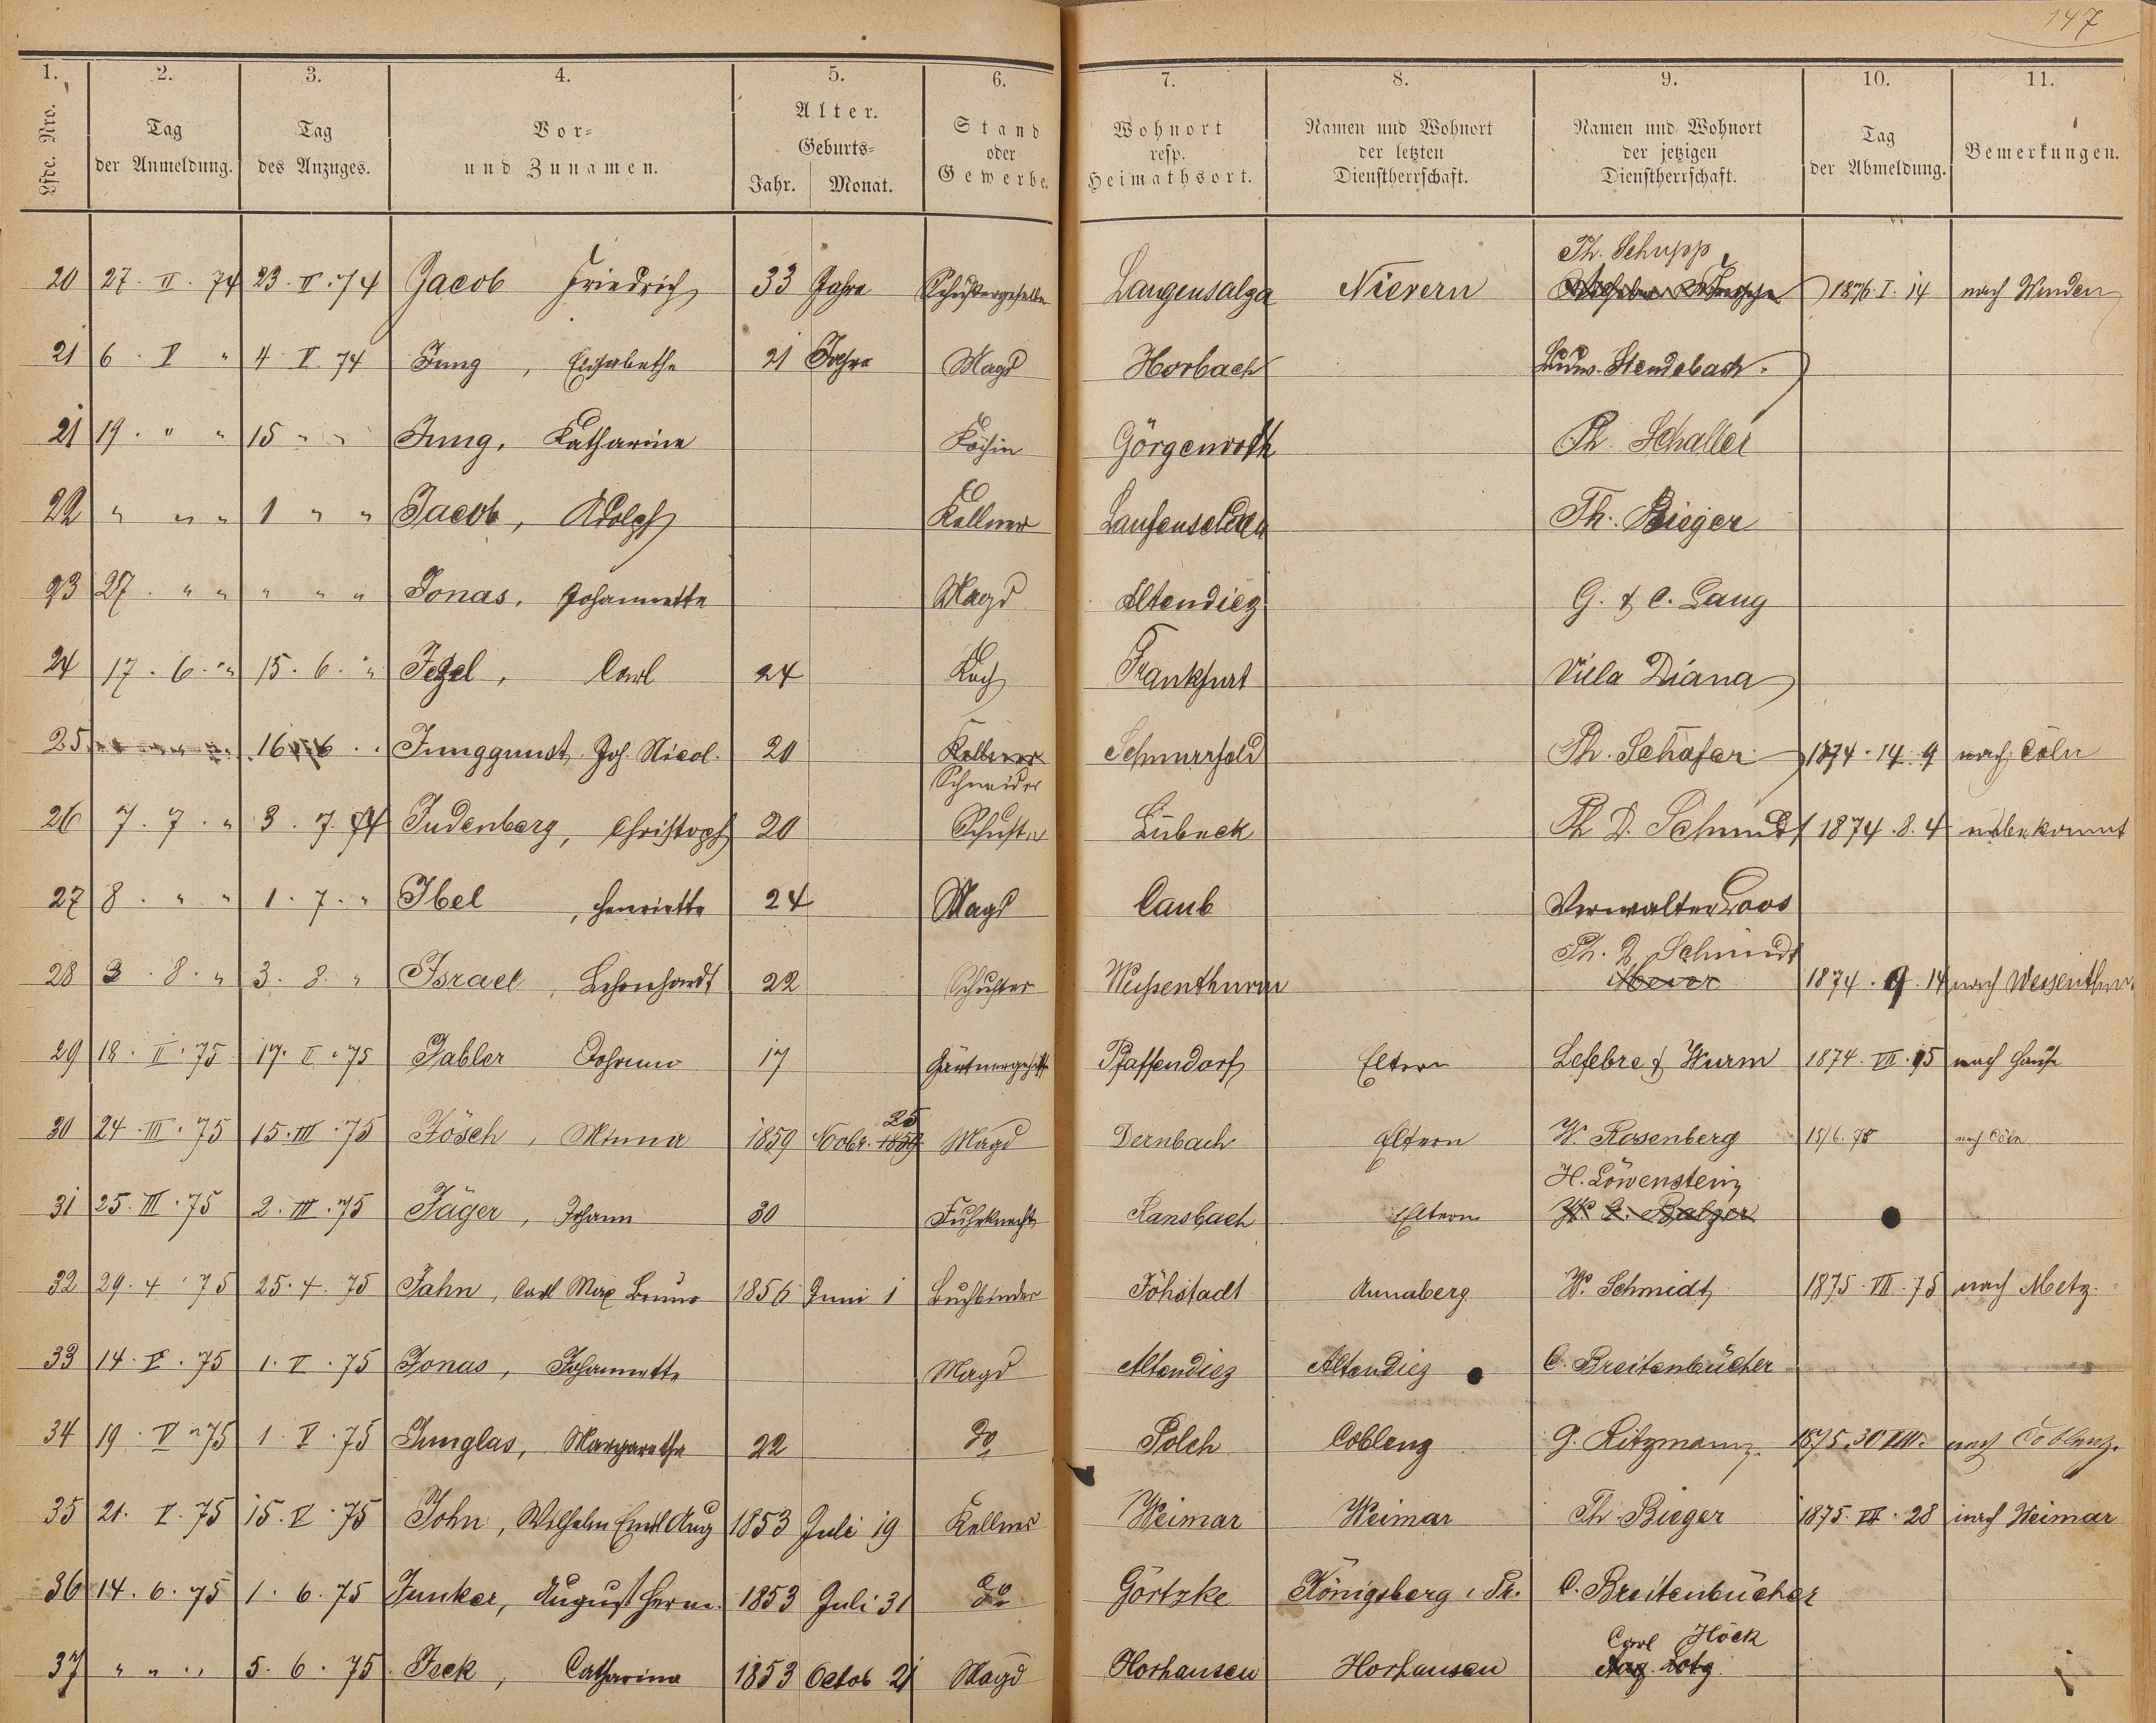 147
1. 2. 3. 4. 5. 6. 7. 8. 9. 10. 11.
Lfde. Nro. Tag der Anmeldung. Tag des Anzuges. Vor- und Zunamen. Alter. Geburts- Jahr. Monat. Stand oder Gewerbe. Wohnort resp. Heimathsort. Namen und Wohnort der letzten Dienstherrschaft. Namen und Wohnort der jetzigen Dienstherrschaft. Tag der Abmeldung. Bemerkungen.
Th. Schupp
20 27. II. 74 23. II. 74 Jacob Friedrich 33 Jahre Schustergeselle Langensalza Nievern 1876. I. 14 nach Winden
21 6. V " 4. V. 74 Jung, Elisabethe 21 Jahre Magd Horbach Ludw. Stendebach.
21 19. " " 15 " " Jung, Katharine Köchin Görgenroth Ph. Schaller
22 " " " 1 " " Jacob, Adolph Kellner Laufenselden Th. Bieger
23 27. " " " " " Jonas, Johannette Magd Altendiez G. & C. Lang
24 17. 6. " 15. 6. " Jegel, Carl 24 Koch Frankfurt Villa Diana
25 16. 6. " Junggunst Joh. Nicol. 20 Kellner Schnurrfeld Ph. Schäfer 1874. 14. 9 nach Cöln
Schneider
26 7. 7. " 3. 7. 74 Judenberg, Christoph 20 Schuster Lübeck Ph. D. Schmidt 1874. 8. 4 unbekannt
27 8. " " 1. 7. " Ibel, Henriette 24 Magd Caub Verwalter Loos
Ph. D. Schmidt
28 3. 8. " 3. 8. " Israel, Lehonhardt 22 Schuster Weissenthurm Meier 1874. 9. 14 nach Weissenthurm
29 18. II. 75 17. I. 75 Jabler Johann 17 Gärtnergehilfe Pfaffendorf Eltern Lefebre & Wurm 1874. VII. 15 nach Hause
25
30 24. III. 75 15. III. 75 Jösch, Minna 1859 Nobr. 1859 Magd Dernbach Eltern W. Rosenberg 15/6. 78 nach Cöln
H. Löwenstein
31 25. III. 75 2. III. 75 Jäger, Johann 30 Fuhrknecht Ransbach Eltern W. G. Balzer
32 29. 4. 75 25. 4. 75 Jahn, Carl Max Bruno 1856 Juni 1 Buchbinder Jöhstadt Annaberg W. Schmidt 1875. VII. 75 nach Metz.
33 14. V. 75 1. V. 75 Jonas, Johannette Magd Altendiez Altendiez C. Breitenbücher
34 19. V. 75 1. V. 75 Junglas, Margarethe 22 do Polch Coblenz G. Ritzmann. 1875. 30 VIII. nach Coblenz.
35 21. V. 75 15. V. 75 John, Wilhelm Emil Aug 1853 Juli 19 Kellner Weimar Weimar Th. Bieger 1875. VII. 28 nach Weimar
36 14. 6. 75 1. 6. 75 Junker, August Herm. 1853 Juli 31 do Görtzke Königsberg i. Pr. C. Breitenbücher
Carl Höck
37 " " " 5. 6. 75 Jeck, Catharina 1853 Octob 21 Magd Horhausen Horhausen Aug. Lotz.